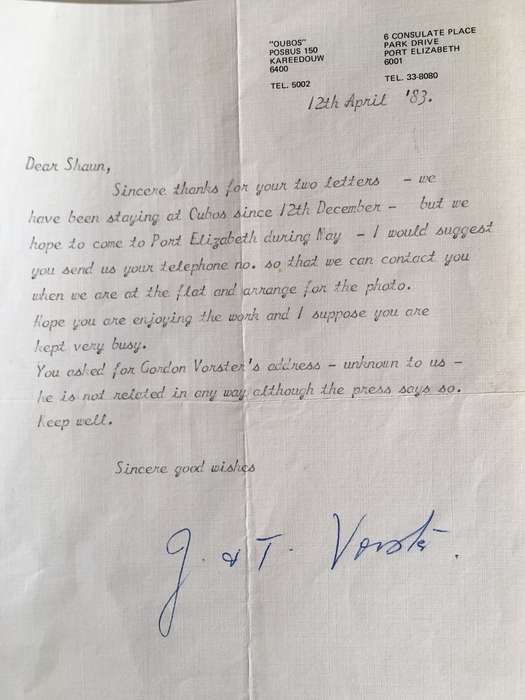 "OUBOS"
POSBUS 150
KAREEDOUW
6400
TEL. 5002
6 CONSULATE PLACE
PARK DRIVE
PORT ELIZABETH
6001
TEL. 33-8080
12th April '83.
Dear Shaun,
Sincere thanks for your two letters - we
have been staying at Oubos since 12th December - but we
hope to come to Port Elizabeth during May - I would suggest
you send us your telephone no. so that we can contact you
when we are at the flat and arrange for the photo.
Hope you are enjoying the work and I suppose you are
kept very busy.
You asked for Gordon Vorster's address - unknown to us -
he is not related in any way although the press says so.
Keep well.
Sincere good wishes
J. & T. Vorster.